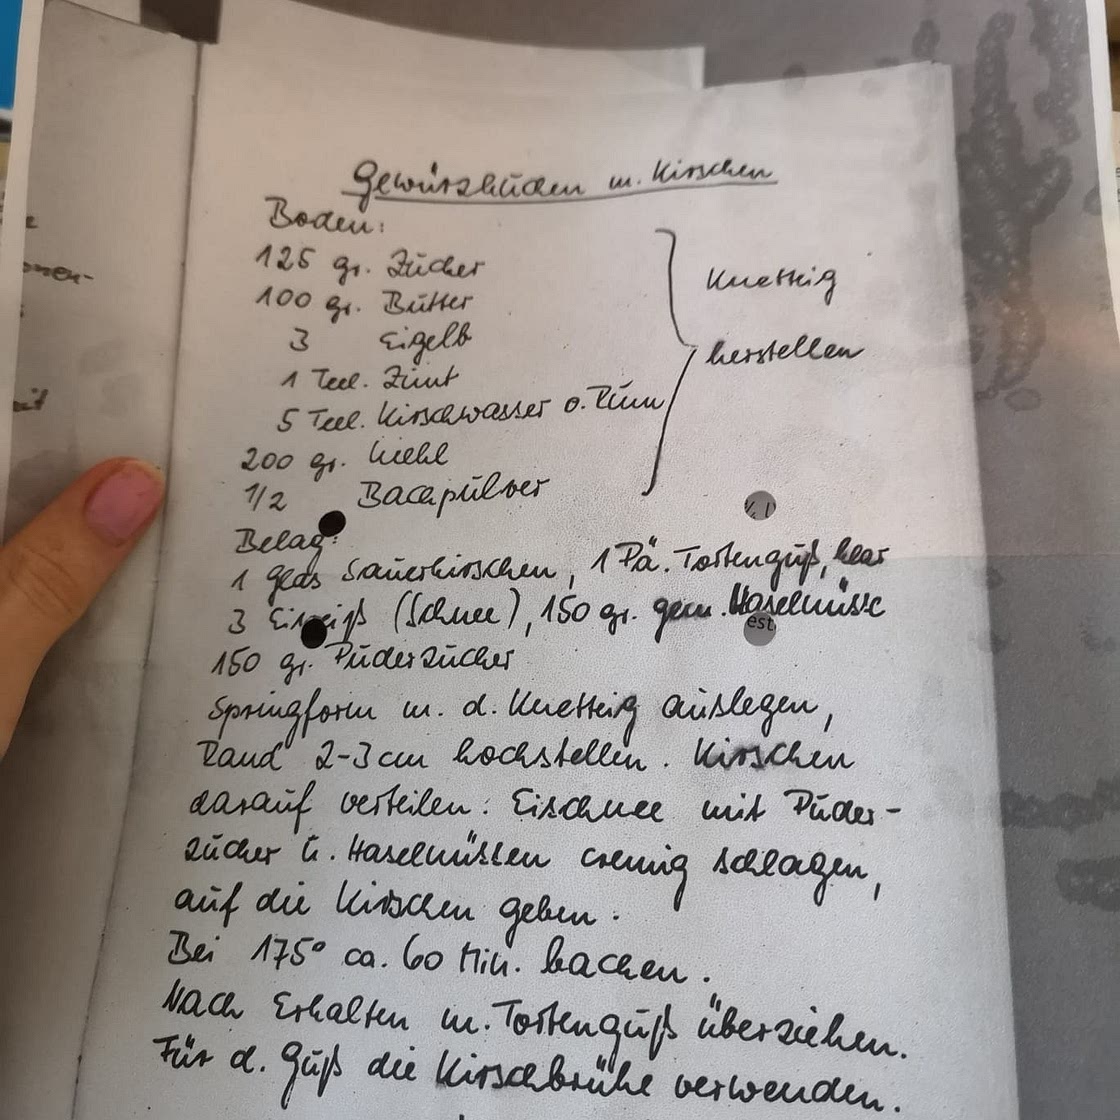 Gewürzkuchen m. Kirschen
Boden:
125 gr. Zucker
100 gr. Butter
3 Eigelb
1 Teel. Zimt
5 Teel. Kirschwasser o. Rum
200 gr. Mehl
1/2 Backpulver
Knetteig
herstellen
Belag:
1 Glas Sauerkirschen, 1 Pä. Tortenguß, klar
3 Eiweiß (Schnee), 150 gr. gem. Haselnüsse
150 gr. Puderzucker
Springform m. d. Knetteig auslegen,
Rand 2-3 cm hochstellen. Kirschen
darauf verteilen. Eischnee mit Puder-
zucker u. Haselnüssen cremig schlagen,
auf die Kirschen geben.
Bei 175° ca. 60 Min. backen.
Nach Erkalten m. Tortenguß überziehen.
Für d. Guß die Kirschbrühe verwenden.
est